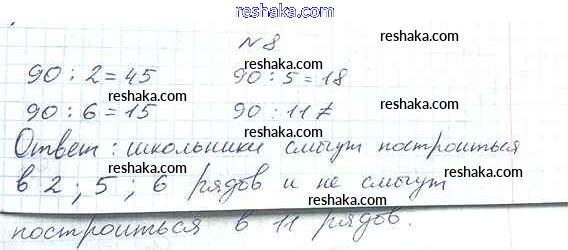 reshaka.com
№8
reshaka.com
reshaka.com
90 : 2 = 45 90 : 5 = 18
reshaka.com reshaka.com
90 : 6 = 15 90 : 11 ≠
reshaka.com
Ответ: школьники смогут построиться
reshaka.com
в 2 ; 5 ; 6 рядов и не смогут
reshaka.com reshaka.com
построиться в 11 рядов.